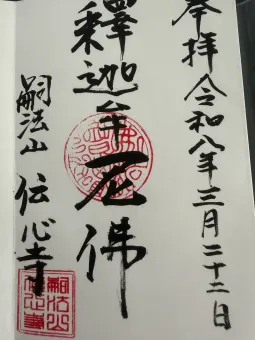 奉拝令和八年三月二十二日
釋迦牟尼佛
嗣法山 伝心寺